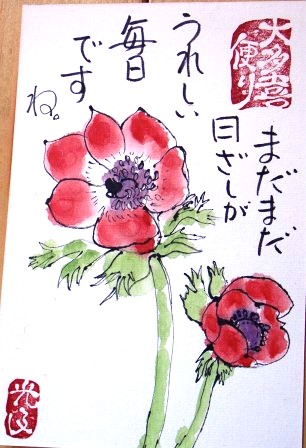 大多喜
便り
まだまだ
日ざしが
うれしい
毎日
です
ね。